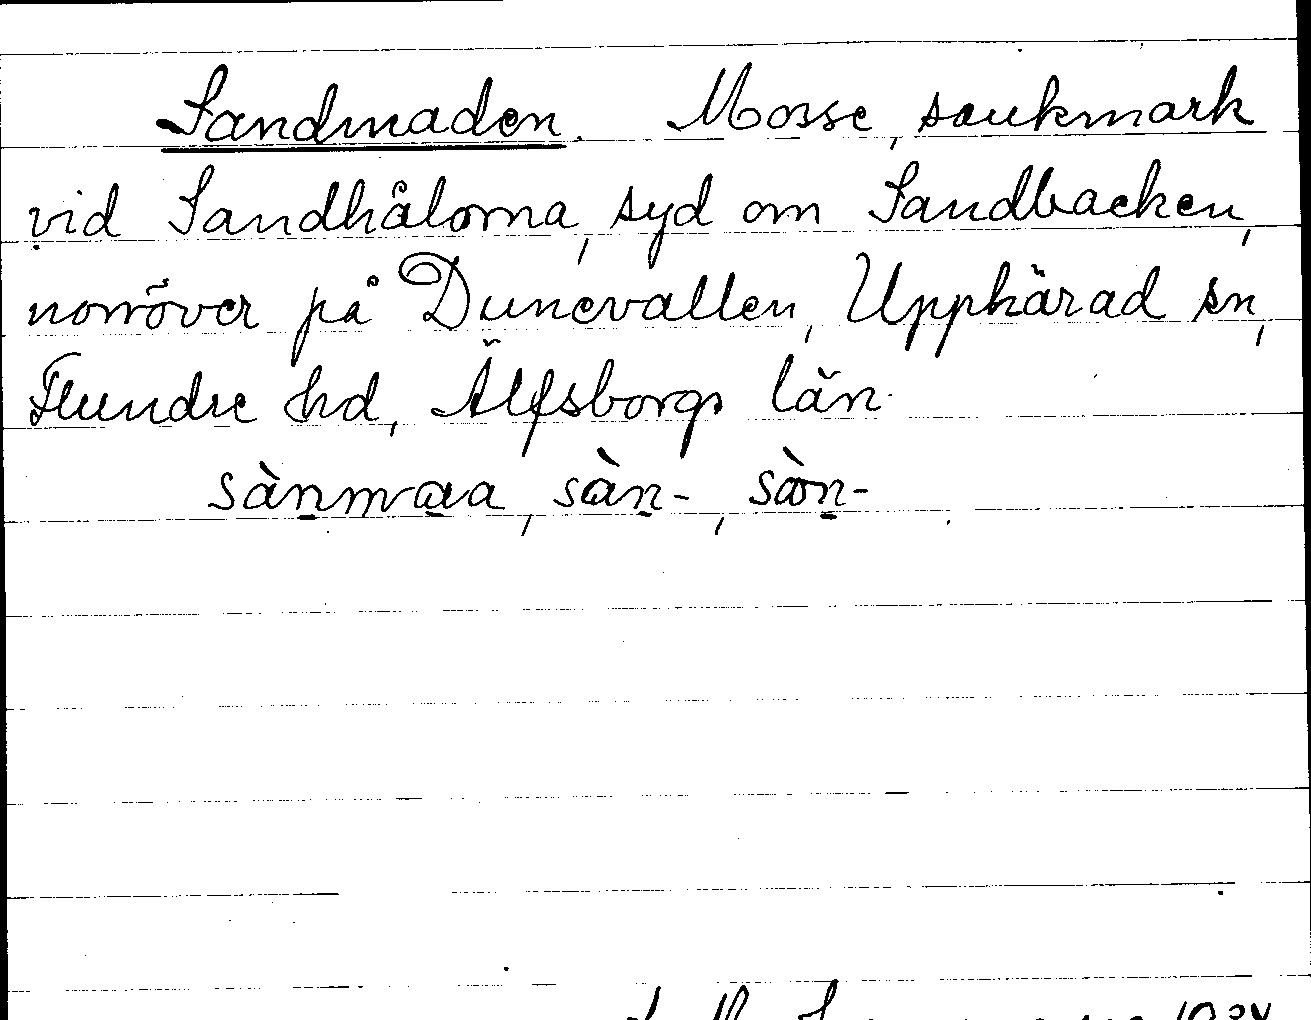 Sandmaden. Mosse, saukmark
vid Sandhålorna, syd om Sandbacken,
norröver på Dunevallen, Upphärad sn,
Flundre hd, Älfsborgs län.
sànmaa, sàn-, sòn-